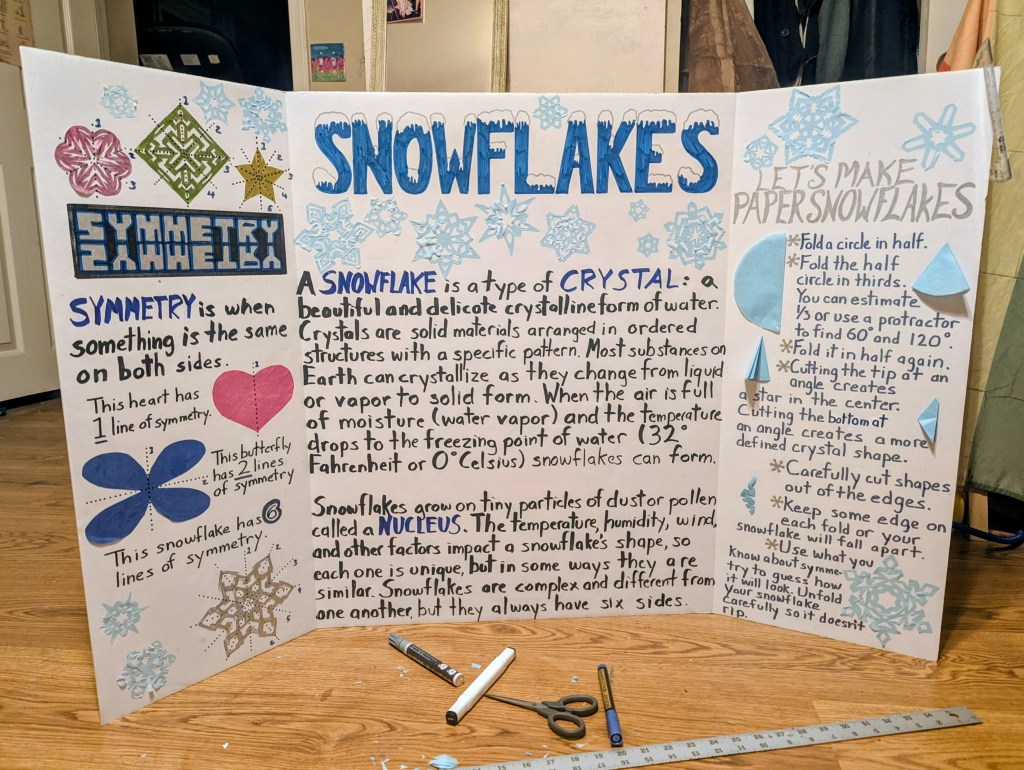 SYMMETRY
SYMMETRY is when
something is the same
on both sides.
This heart has
1 line of symmetry.
This butterfly
has 2 lines
of symmetry
This snowflake has 6
lines of symmetry.
SNOWFLAKES
A SNOWFLAKE is a type of CRYSTAL: a
beautiful and delicate crystalline form of water.
Crystals are solid materials arranged in ordered
structures with a specific pattern. Most substances on
Earth can crystallize as they change from liquid
or vapor to solid form. When the air is full
of moisture (water vapor) and the temperature
drops to the freezing point of water (32°
Fahrenheit or 0° Celsius) snowflakes can form.
Snowflakes grow on tiny particles of dust or pollen
called a NUCLEUS. The temperature, humidity, wind,
and other factors impact a snowflake's shape, so
each one is unique, but in some ways they are
similar. Snowflakes are complex and different from
one another, but they always have six sides.
LET'S MAKE
PAPER SNOWFLAKES
* Fold a circle in half.
* Fold the half
circle in thirds.
You can estimate
1/3 or use a protractor
to find 60° and 120°.
* Fold it in half again.
* Cutting the tip at an
angle creates
a star in the center.
Cutting the bottom at
an angle creates a more
defined crystal shape.
* Carefully cut shapes
out of the edges.
* Keep some edge on
each fold or your
snowflake will fall apart.
* Use what you
know about symme-
try to guess how
it will look. Unfold
your snowflake
carefully so it doesn't
rip.